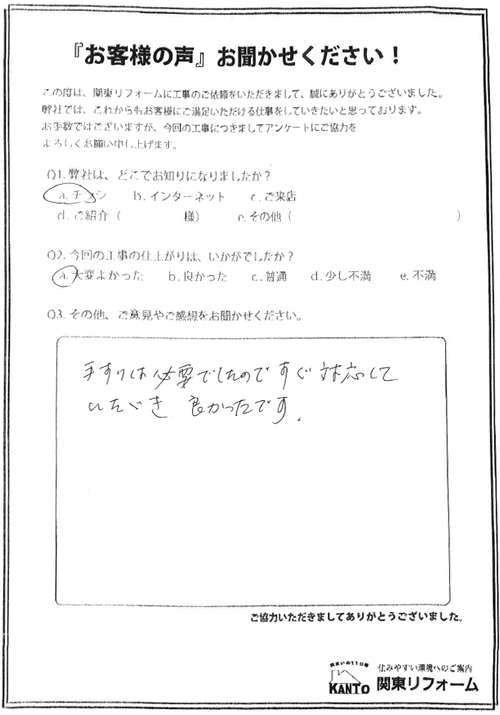 『お客様の声』お聞かせください！
この度は、関東リフォームに工事のご依頼をいただきまして、誠にありがとうございました。
弊社では、これからもお客様にご満足いただける仕事をしていきたいと思っております。
お手数ではございますが、今回の工事につきましてアンケートにご協力を
よろしくお願い申し上げます。
Q1. 弊社は、どこでお知りになりましたか？
a. チラシ b. インターネット c. ご来店
d. ご紹介（ 様） e. その他（ ）
Q2. 今回の工事の仕上がりは、いかがでしたか？
a. 大変よかった b. 良かった c. 普通 d. 少し不満 e. 不満
Q3. その他、ご意見やご感想をお聞かせください。
手すりは必要でしたのですぐ対応して
いただき 良かったです.
ご協力いただきましてありがとうございました。
住まいの110番
KANTO
住みやすい環境へのご案内
関東リフォーム